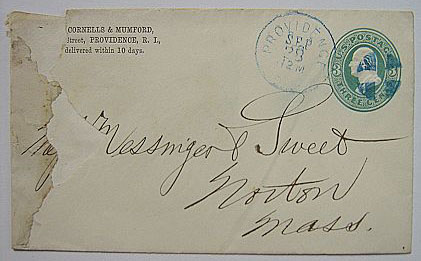 CORNELLS & MUMFORD,
Street, PROVIDENCE, R. I.,
delivered within 10 days.
PROVIDENCE
SEP
12 M
U.S. POSTAGE
THREE CENTS
Messinger & Sweet
Norton
Mass.